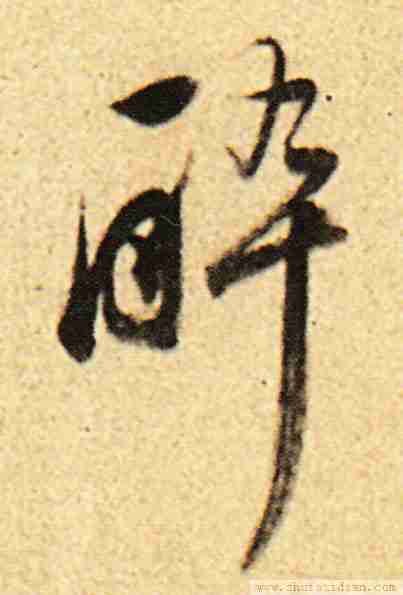 醉
www.shufazidian.com